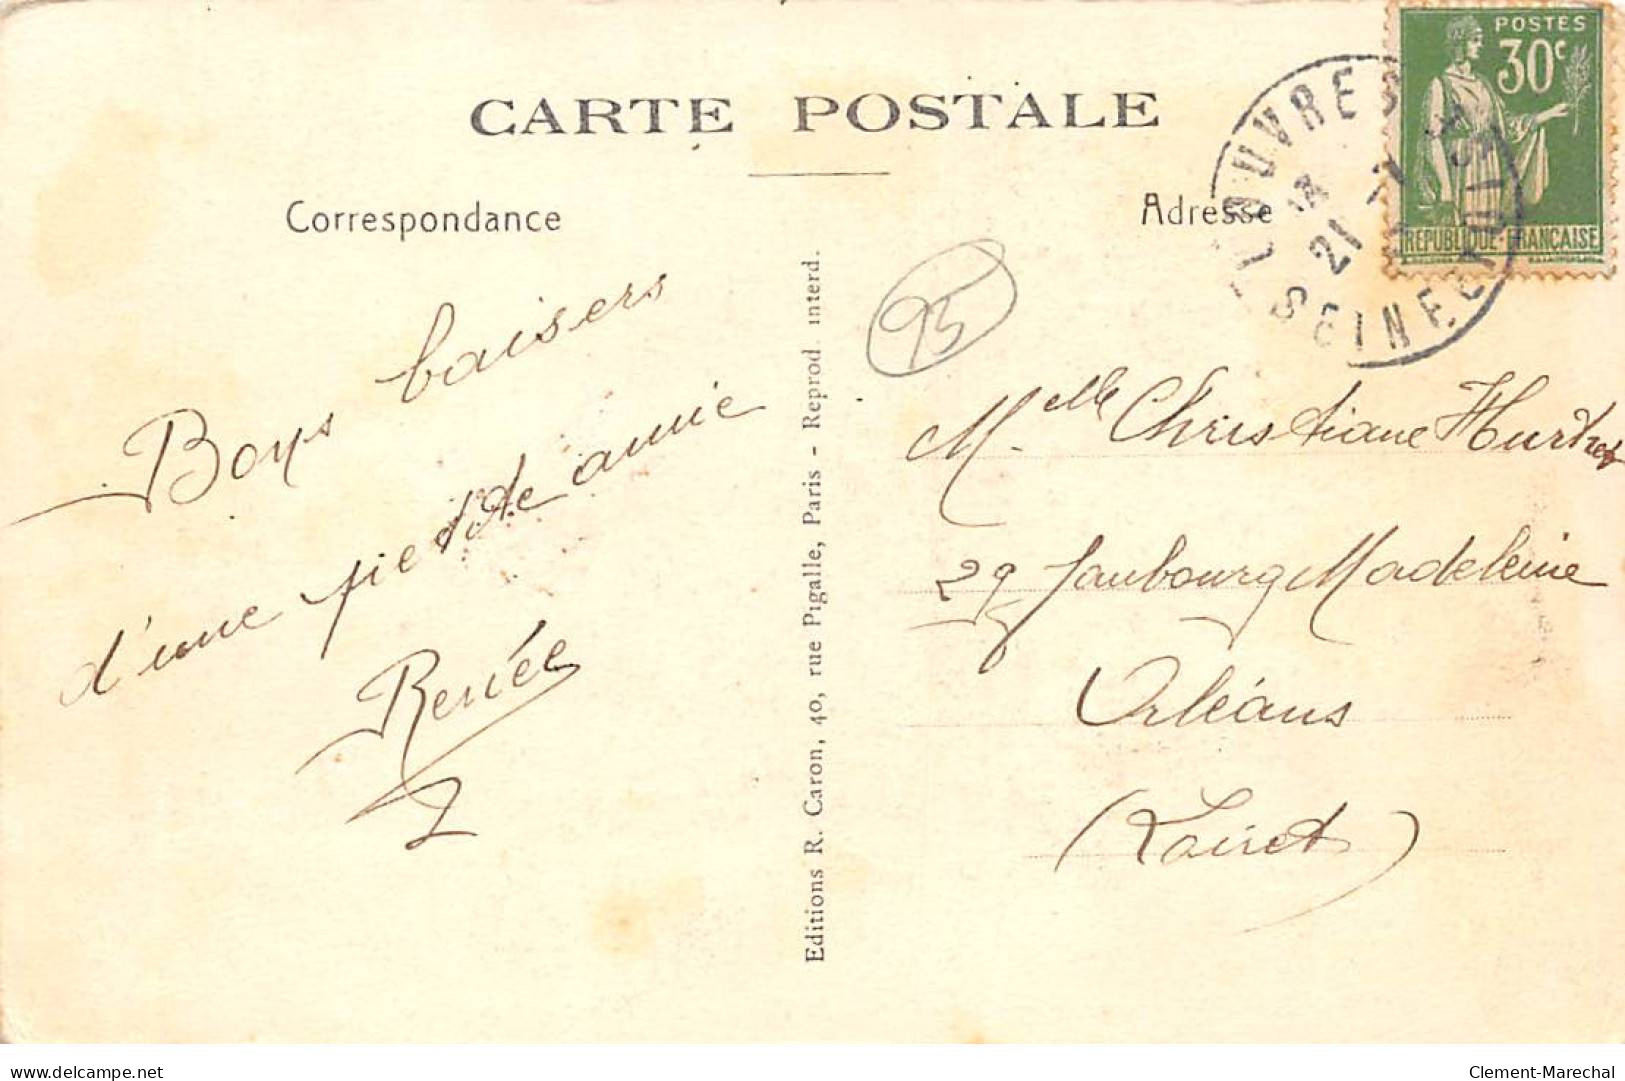 CARTE POSTALE
Correspondance
Adresse
POSTES
30c
REPUBLIQUE FRANÇAISE
LOUVRES
21
SEINE ET OISE
95
Bons baisers
d'une petite amie
Renée
Editions R. Caron, 40, rue Pigalle, Paris - Reprod. interd.
Melle Christiane
29 faubourg Madeleine
Orléans
(Loiret)
delcampe.net
Clement-Marechal